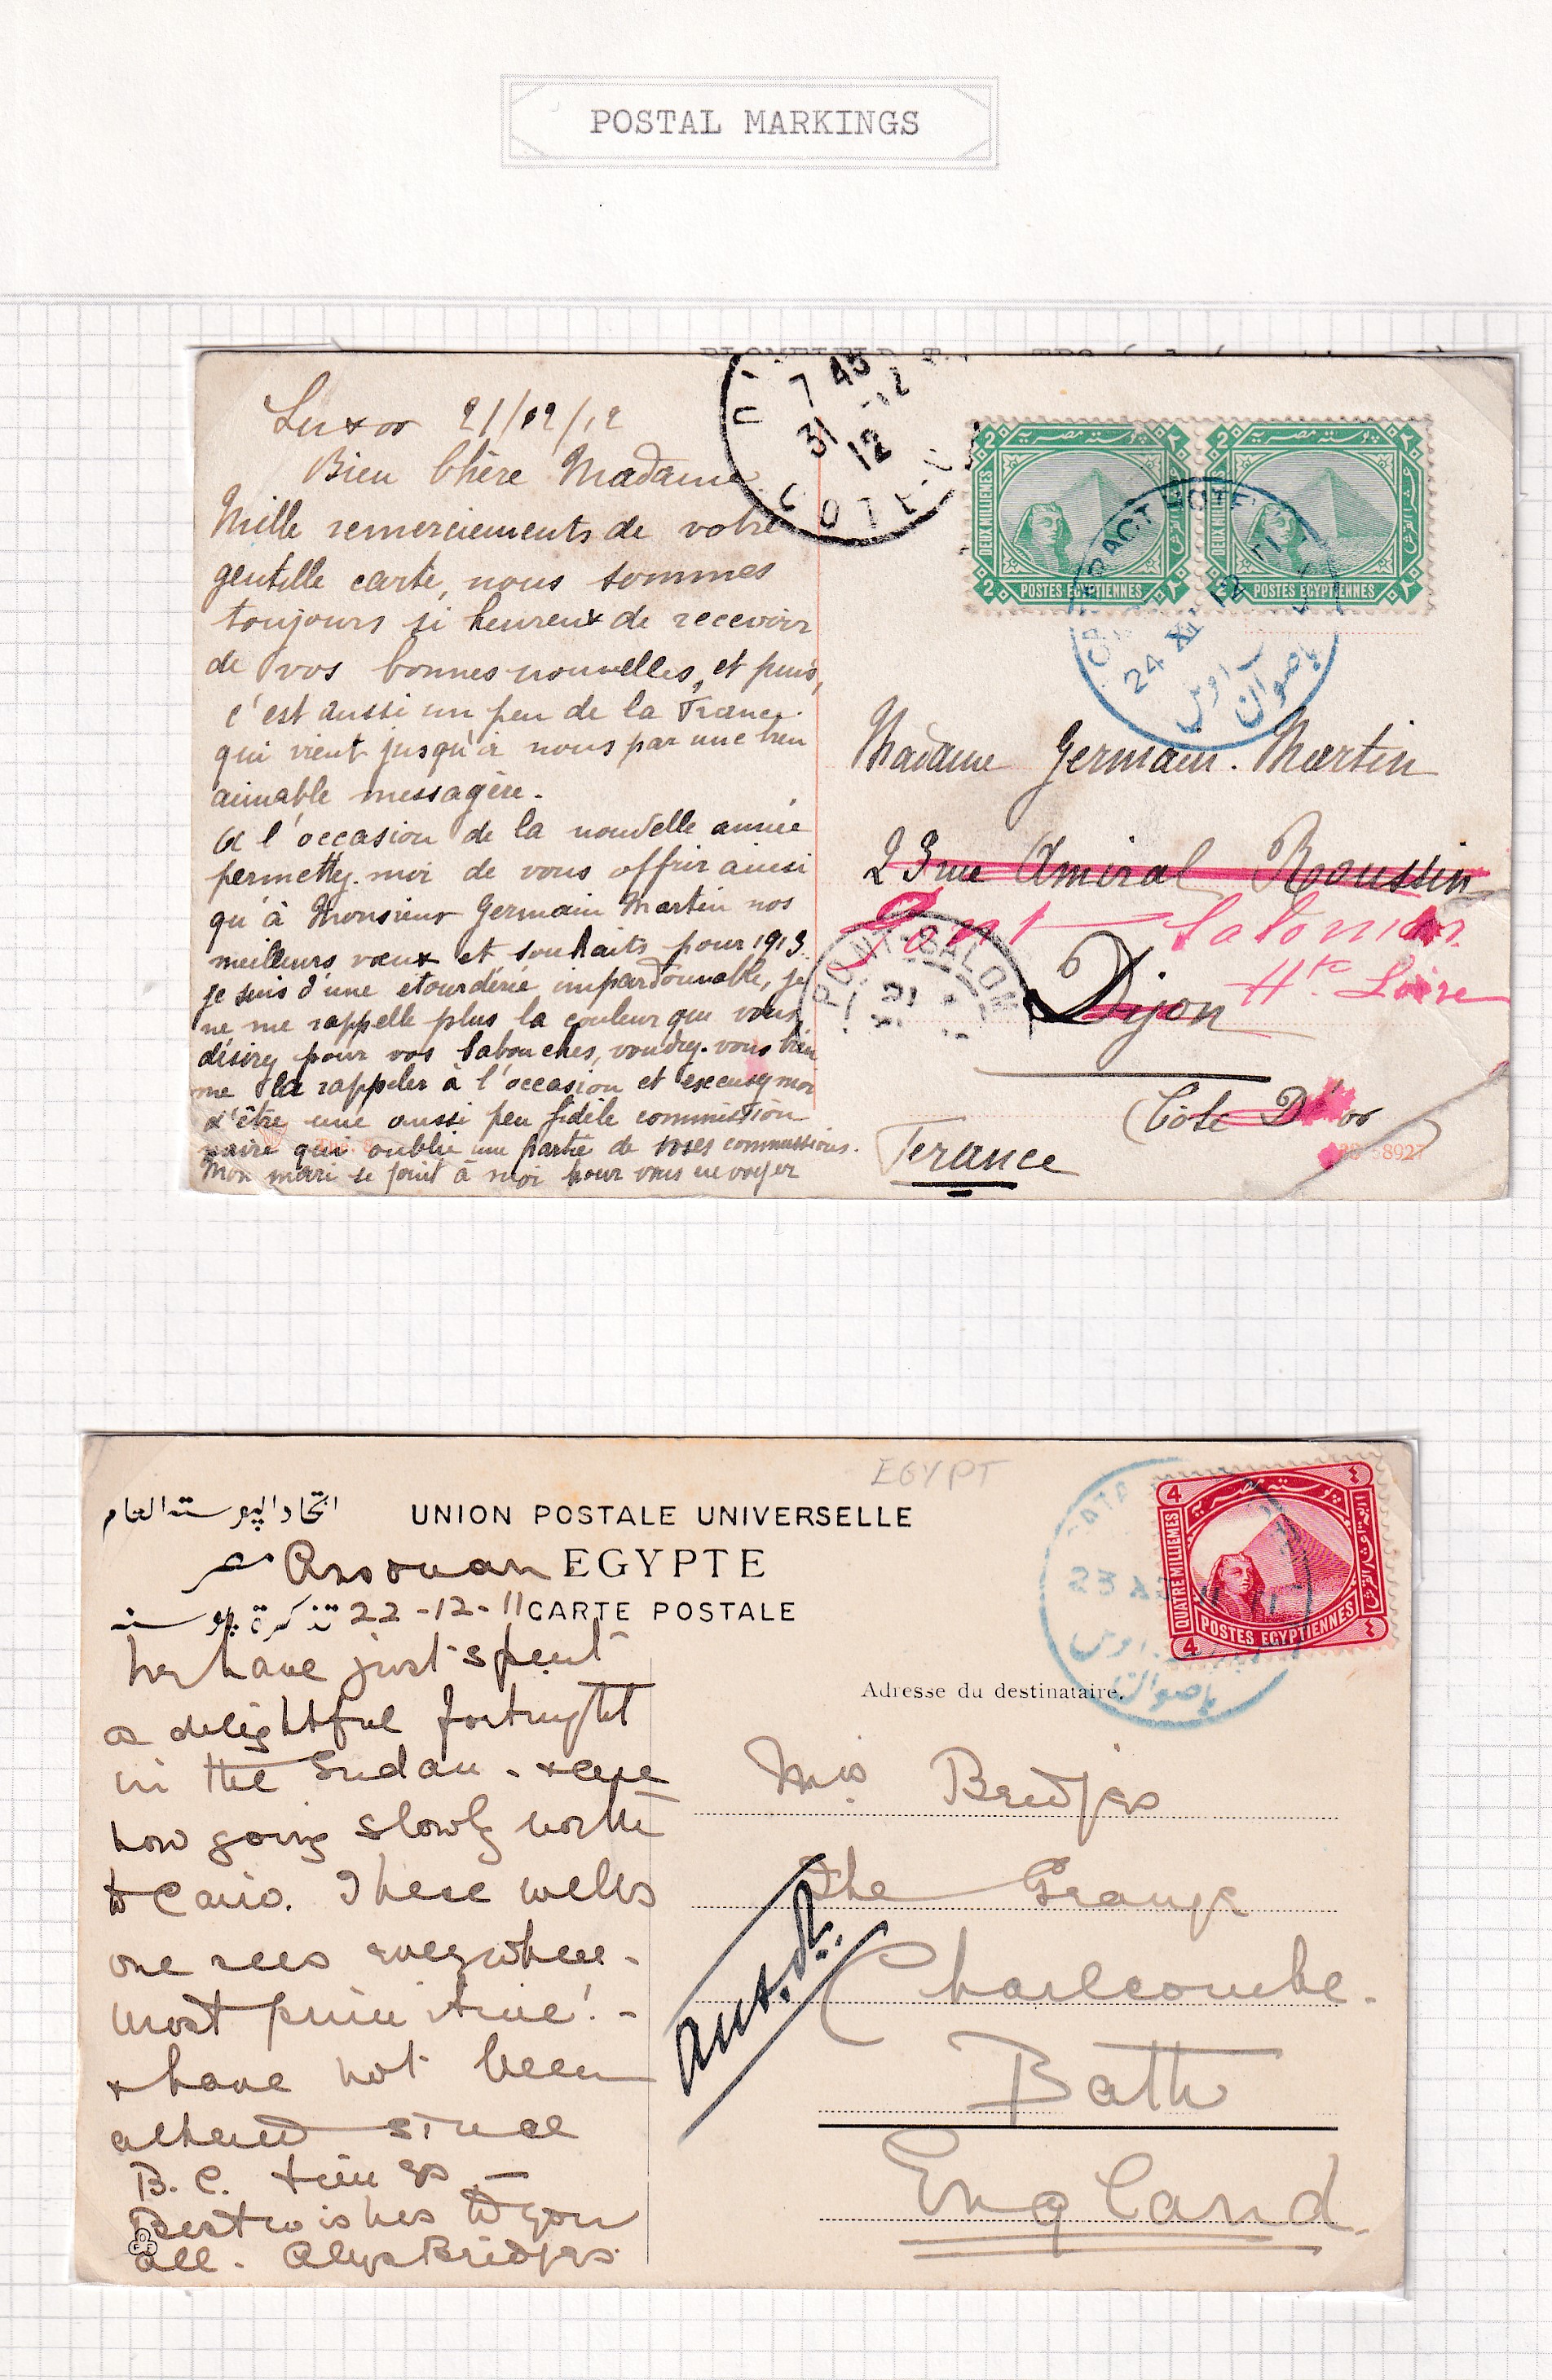 POSTAL MARKINGS
Luxor 21/12/12
Bien Chère Madame
Mille remerciements de votre
gentille carte, nous sommes
toujours si heureux de recevoir
de vos bonnes nouvelles, et puis,
c'est aussi un peu de la France
qui vient jusqu'à nous par une bien
aimable messagère.
A l'occasion de la nouvelle année
permettez-moi de vous offrir ainsi
qu'à Monsieur Germain Martin nos
meilleurs vœux et souhaits pour 1913.
je suis d'une étourderie impardonnable, je
ne me rappelle plus la couleur que vous
désirez pour vos babouches, voudrez-vous bien
me la rappeler à l'occasion et excusez moi
d'être une aussi peu fidèle commission
naire qui oublie une partie de ses commissions.
Mon mari se joint à moi pour vous envoyer
7 45
31 -12
12
COTE-D
2 بوستة مصرية ٢
DEUX MILLIEMES
POSTES EGYPTIENNES
2 ٢
2 بوستة مصرية ٢
DEUX MILLIEMES
POSTES EGYPTIENNES
2 ٢
CATARACT HOTEL
24 XII 12
باصوان
Madame Germain-Martin
23 rue Amiral Roussin
Pont Salomon
Hte Loire
PONT-SALOMON
Dijon
(Côte D'or
France
EGYPT
اتحاد البوستة العام
UNION POSTALE UNIVERSELLE
مصر
Assouan
EGYPTE
تذكرة بوستة
22-12-11
CARTE POSTALE
We have just spent
a delightful fortnight
in the Sudan - & are
now going slowly north
to Cairo. These wells
one sees everywhere -
most primitive! -
& have not been
altered since
B.C. times -
Best wishes to you
all. Alys Bridges.
23 XII 11
باصوان
4 بوستة مصرية ٤
QUATRE MILLIEMES
POSTES EGYPTIENNES
4 ٤
Adresse du destinataire.
Bridges
The Grange
Charlcombe.
Bath
England.